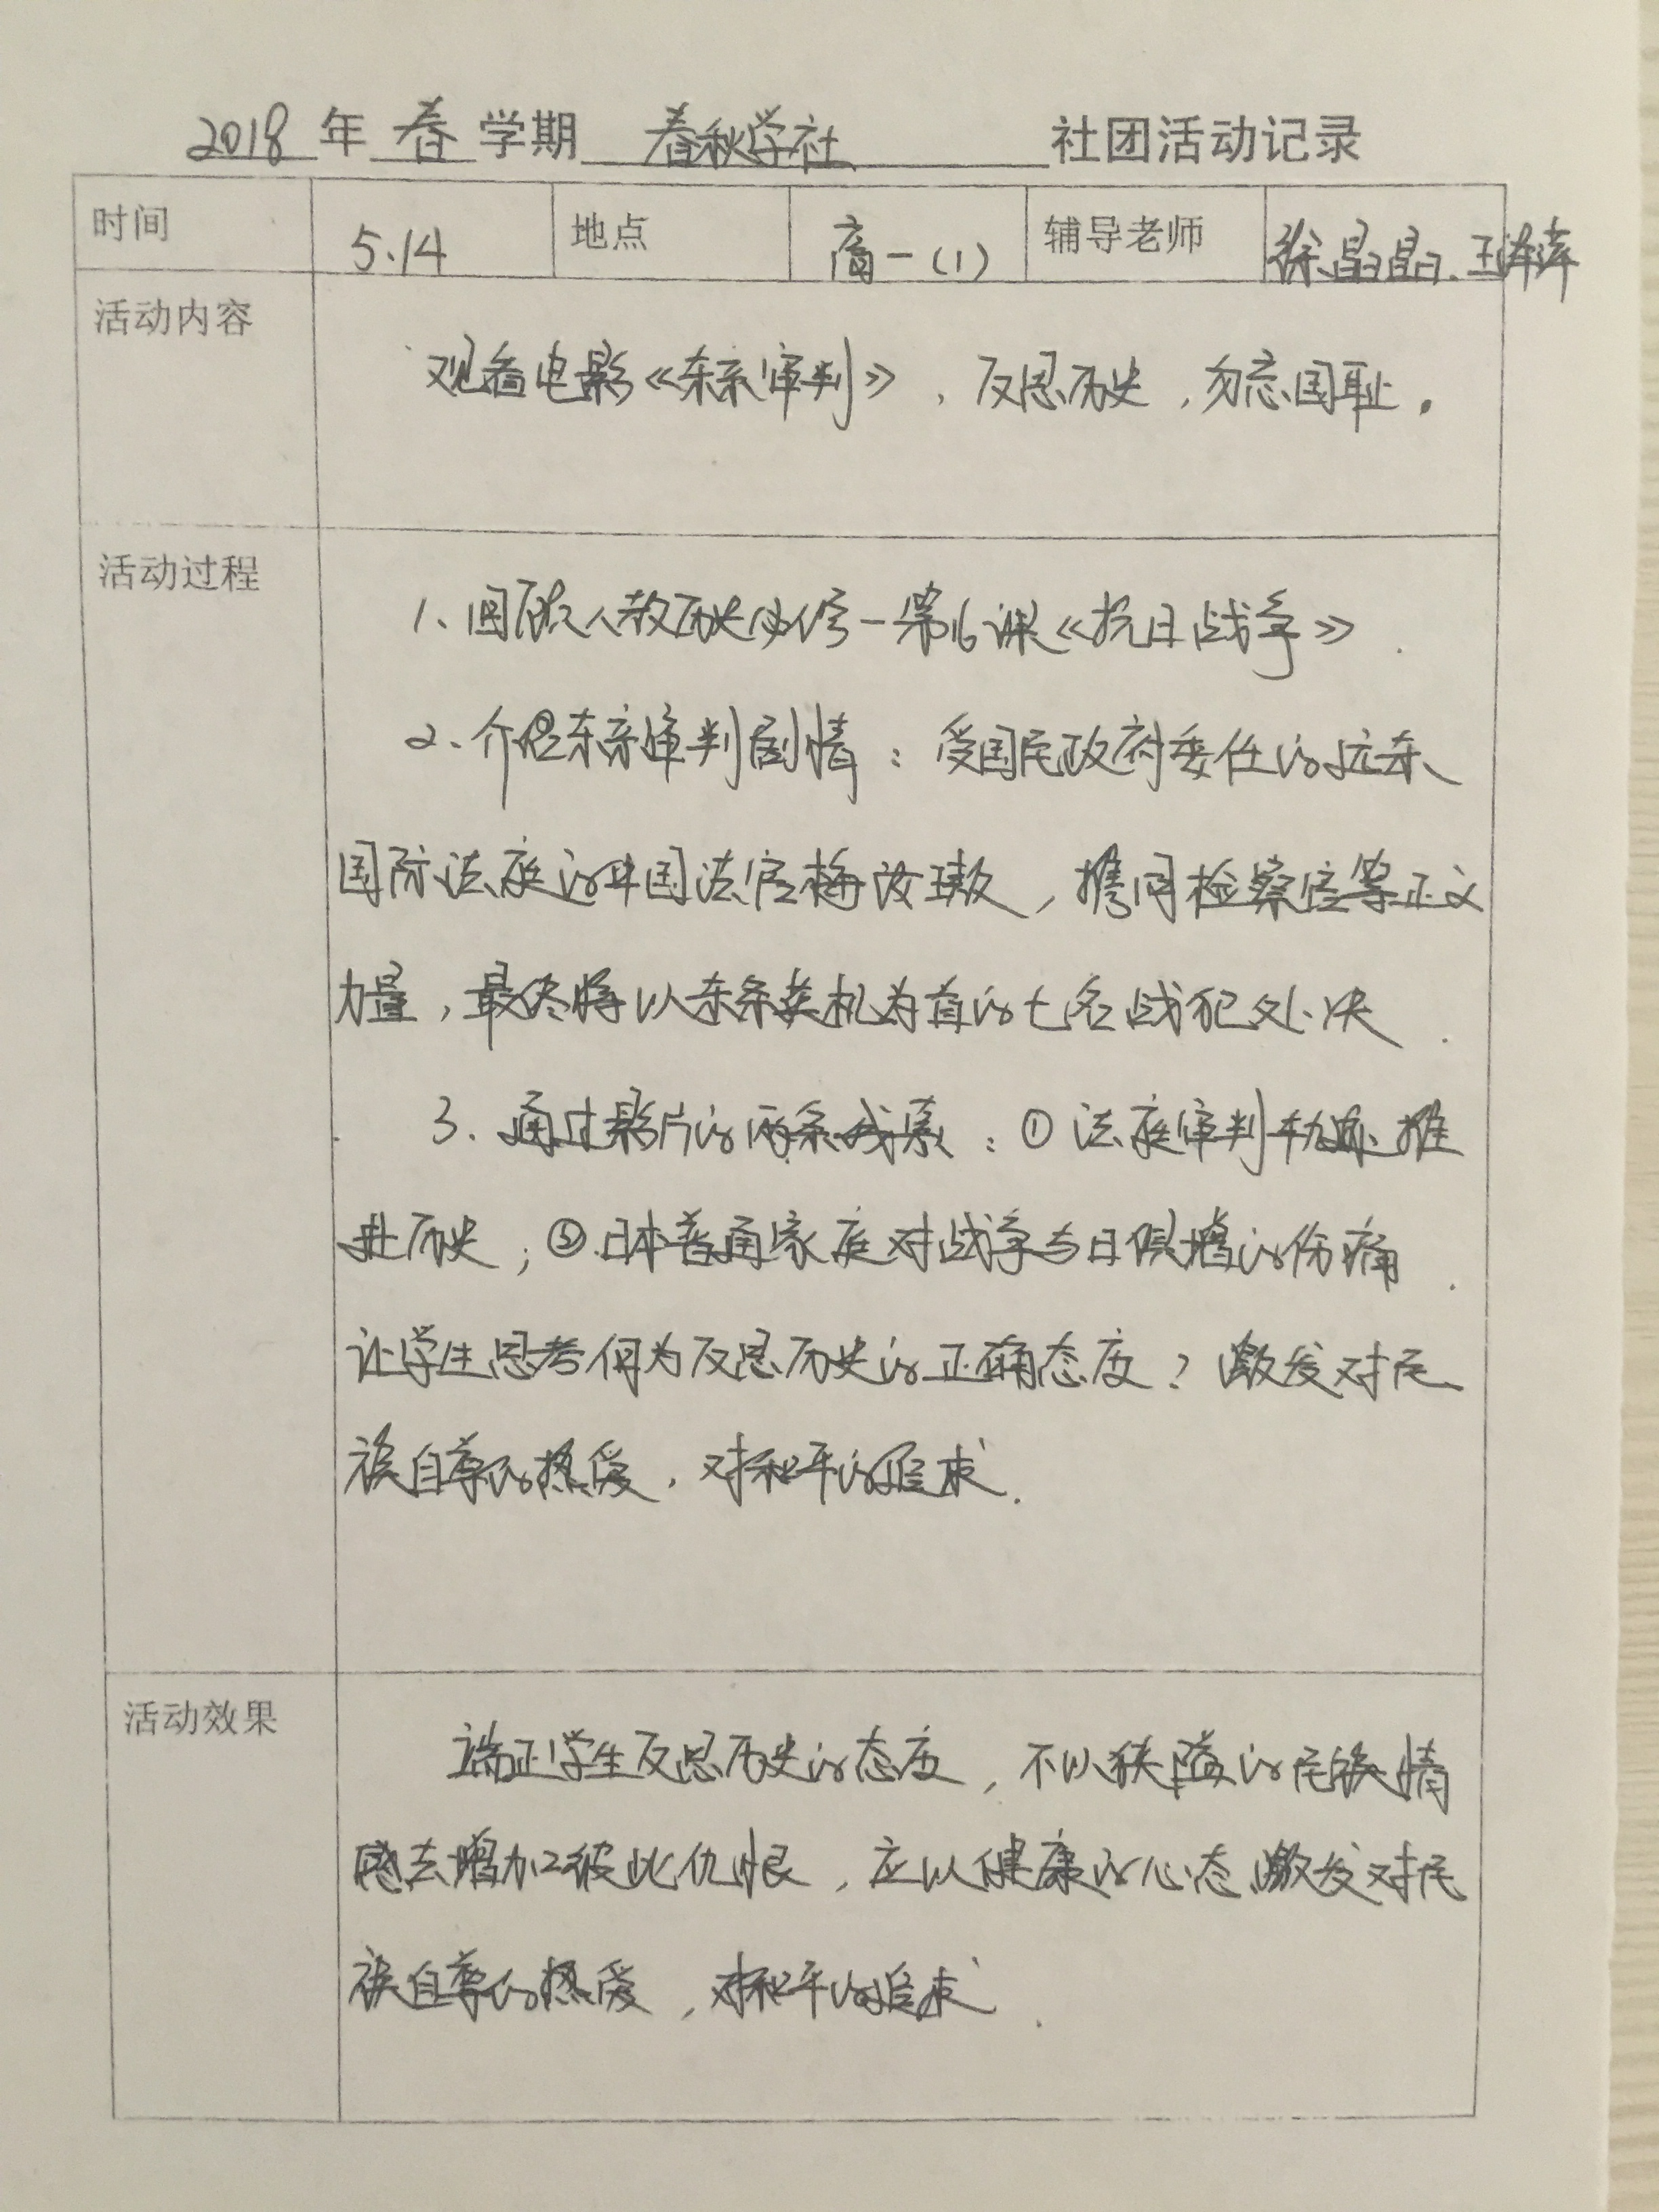 2018 年 春 学期 春秋学社 社团活动记录
时间 5.14 地点 高一(1) 辅导老师 徐晶晶、王萍萍
活动内容
观看电影《东京审判》，反思历史，勿忘国耻。
活动过程
1、回顾人教历史必修一第16课《抗日战争》.
2、介绍东京审判剧情：受国民政府委任的远东
国际法庭的中国法官梅汝璈，携同检察官等正义
力量，最终将以东条英机为首的七名战犯处决.
3、通过影片的两条线索：①法庭审判轨迹推
进历史；②日本普通家庭对战争与日俱增的伤痛.
让学生思考何为反思历史的正确态度？激发对民
族自尊的热爱，对和平的追求.
活动效果
端正学生反思历史的态度，不以狭隘的民族情
感去增加彼此仇恨，应以健康的心态激发对民
族自尊的热爱，对和平的追求.